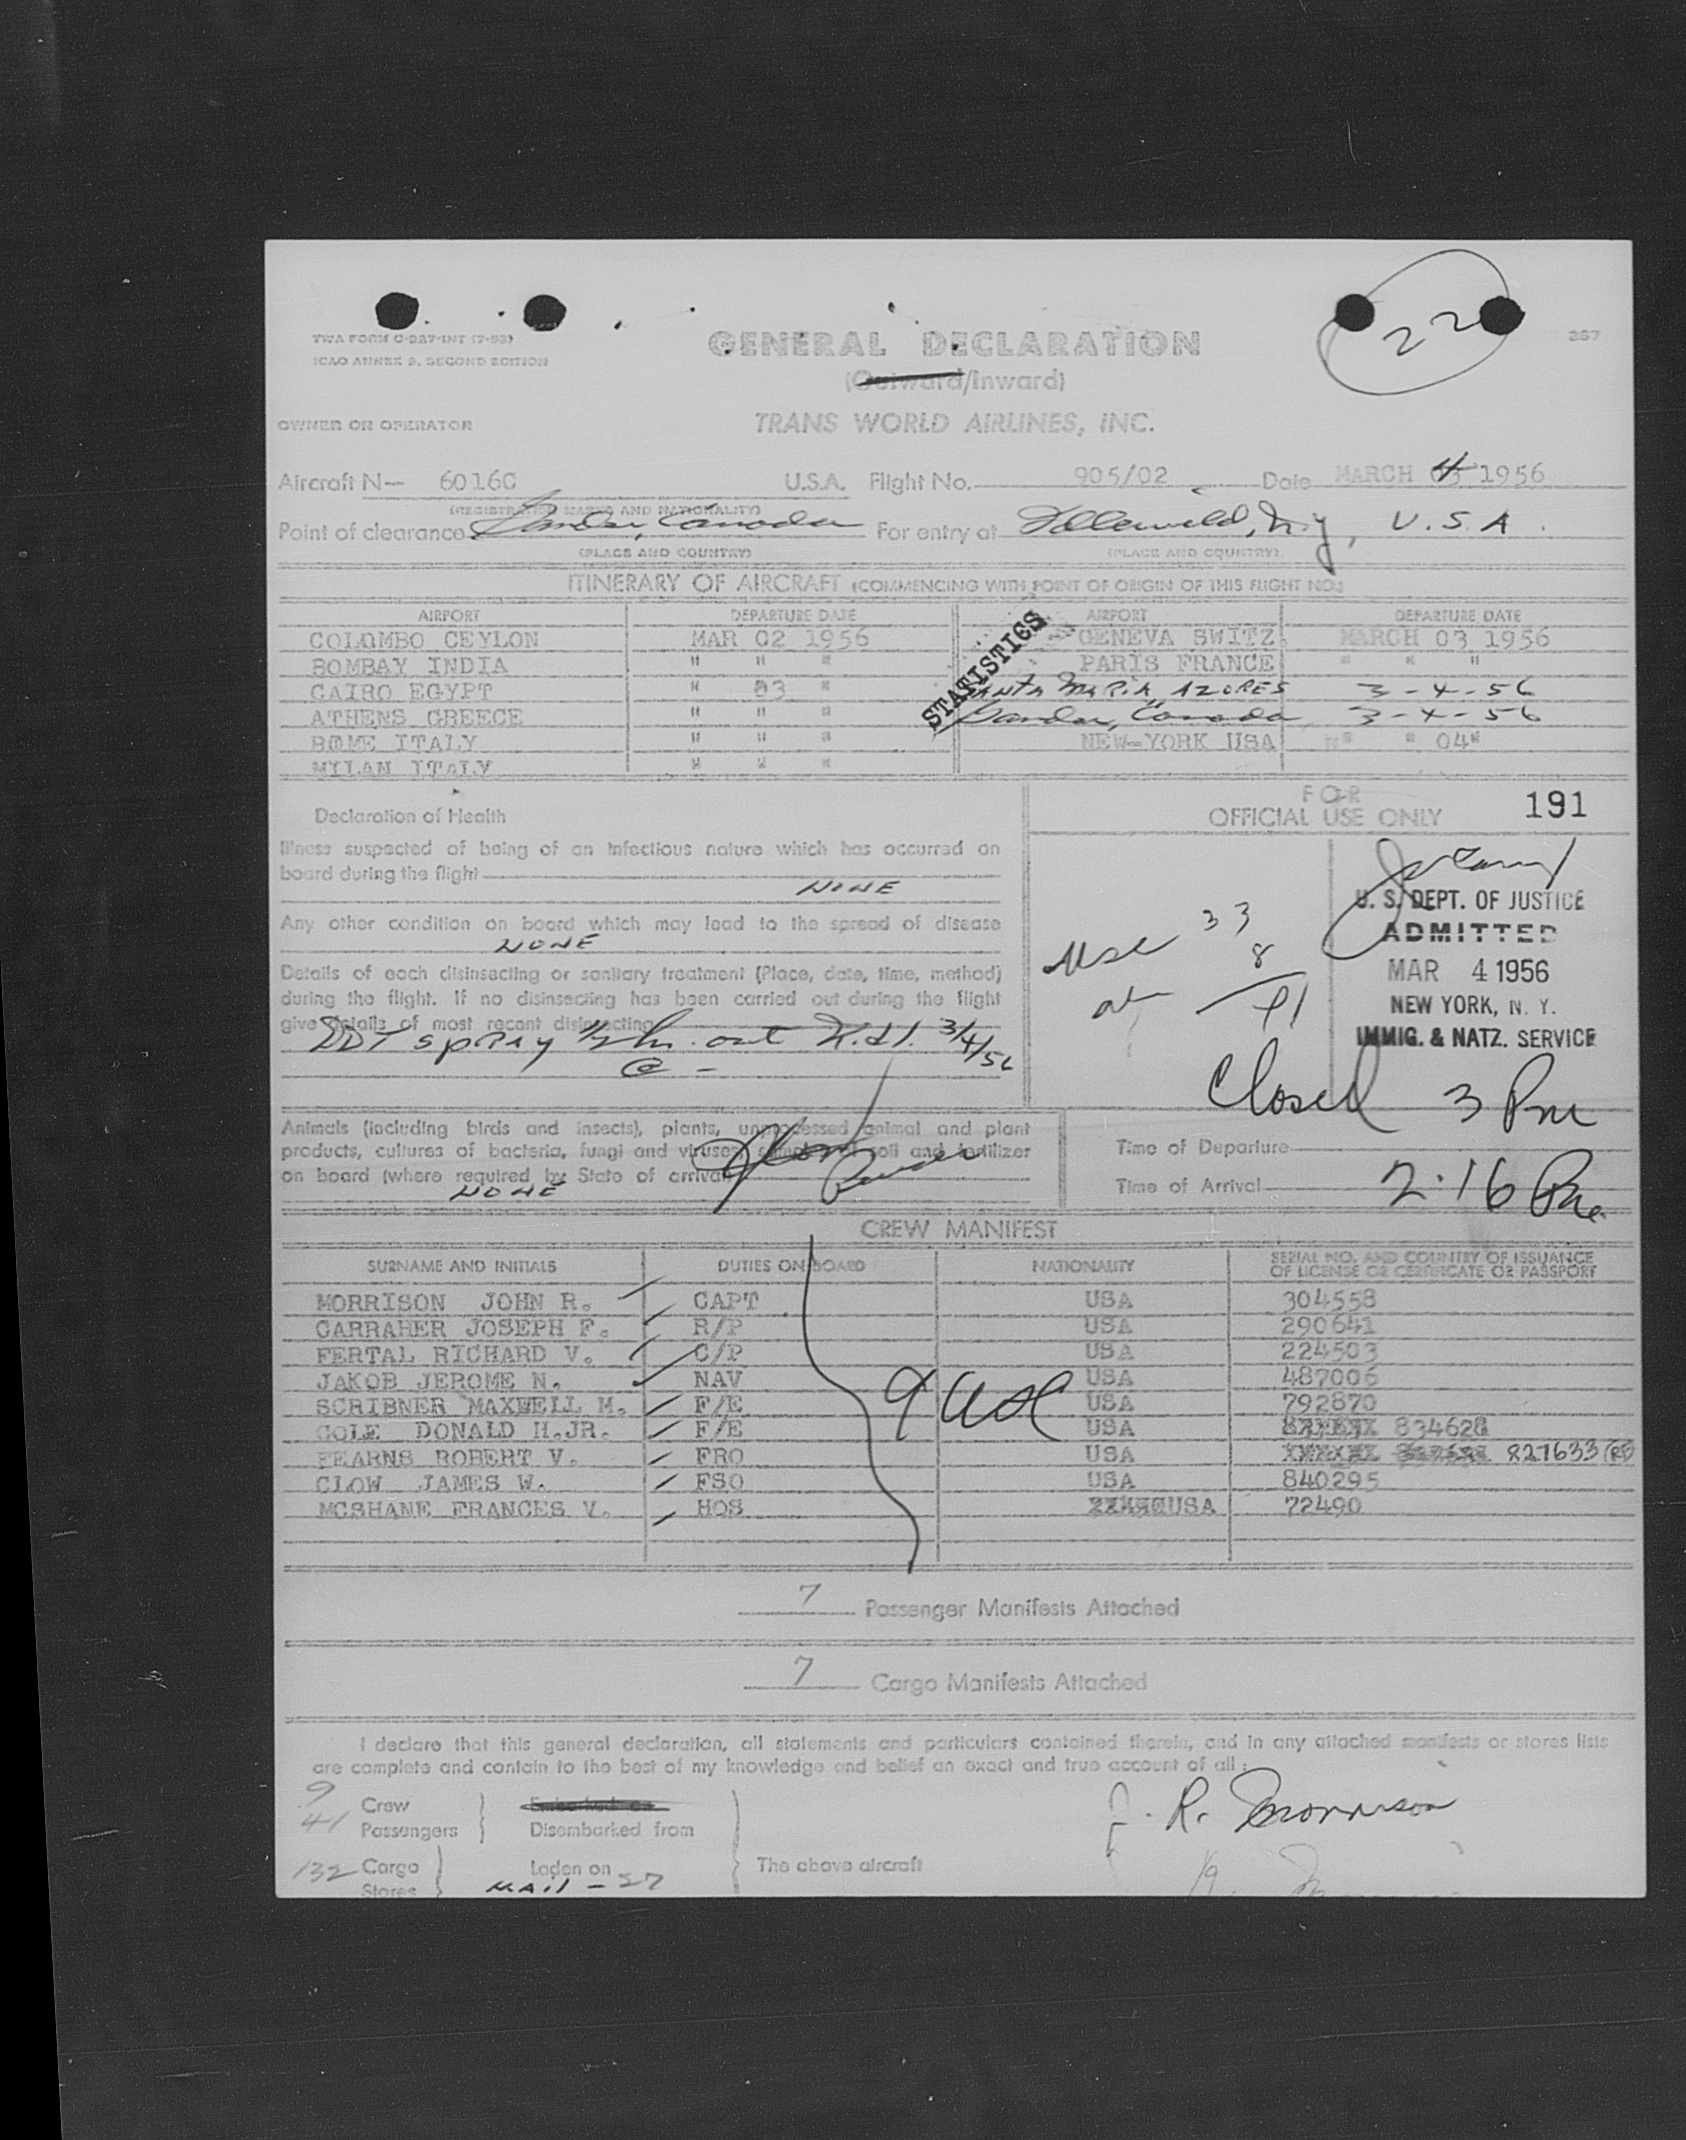 TWA FORM O-227-INT (7-53)
ICAO ANNEX 9, SECOND EDITION
GENERAL DECLARATION
(Outward/Inward)
22
267
OWNER OR OPERATOR
TRANS WORLD AIRLINES, INC.
Aircraft N— 6016C U.S.A. Flight No. 905/02 Date MARCH 4 1956
(REGISTRATION MARKS AND NATIONALITY)
Point of clearance Gander, Canada For entry at Idlewild, N.Y, U.S.A.
(PLACE AND COUNTRY) (PLACE AND COUNTRY)
ITINERARY OF AIRCRAFT (COMMENCING WITH POINT OF ORIGIN OF THIS FLIGHT NO.)
AIRPORT DEPARTURE DATE AIRPORT DEPARTURE DATE
COLOMBO CEYLON MAR 02 1956 GENEVA SWITZ. MARCH 03 1956
BOMBAY INDIA " " " PARIS FRANCE " " "
CAIRO EGYPT " 03 " SANTA MARIA, AZORES 3-4-56
ATHENS GREECE " " " Gander, Canada 3-4-56
ROME ITALY " " " NEW-YORK USA "" " 04"
MILAN ITALY " " "
STATISTICS
Declaration of Health
FOR
OFFICIAL USE ONLY 191
Illness suspected of being of an infectious nature which has occurred on
board during the flight
NONE
Any other condition on board which may lead to the spread of disease
NONE
Details of each disinsecting or sanitary treatment (Place, date, time, method)
during the flight. If no disinsecting has been carried out during the flight
give details of most recent disinsecting
DDT spray 1/2 hr. out 3/4/56
USC 33
al 8
41
U. S. DEPT. OF JUSTICE
ADMITTED
MAR 4 1956
NEW YORK, N. Y.
IMMIG. & NATZ. SERVICE
Closed 3 Pm
Animals (including birds and insects), plants, unprocessed animal and plant
products, cultures of bacteria, fungi and viruses, samples of soil and fertilizer
on board (where required by State of arrival)
NONE
Time of Departure
Time of Arrival 2:16 Pm
CREW MANIFEST
SURNAME AND INITIALS DUTIES ON BOARD NATIONALITY SERIAL NO. AND COUNTRY OF ISSUANCE
OF LICENSE OR CERTIFICATE OR PASSPORT
MORRISON JOHN R. CAPT USA 304558
CARRAHER JOSEPH F. R/P USA 290641
FERTAL RICHARD V. C/P USA 224503
JAKOB JEROME N. NAV USA 487006
SCRIBNER MAXWELL M. F/E USA 792870
COLE DONALD H.JR. F/E USA 834628
FEARNS ROBERT V. FRO USA 827633
CLOW JAMES W. FSO USA 840295
MCSHANE FRANCES V. HOS USA 72490
9 USC
7 Passenger Manifests Attached
7 Cargo Manifests Attached
I declare that this general declaration, all statements and particulars contained therein, and in any attached manifests or stores lists
are complete and contain to the best of my knowledge and belief an exact and true account of all:
9 Crew Embarked on
41 Passengers Disembarked from
J. R. Morrison
132 Cargo Laden on The above aircraft
Stores MAIL - 27